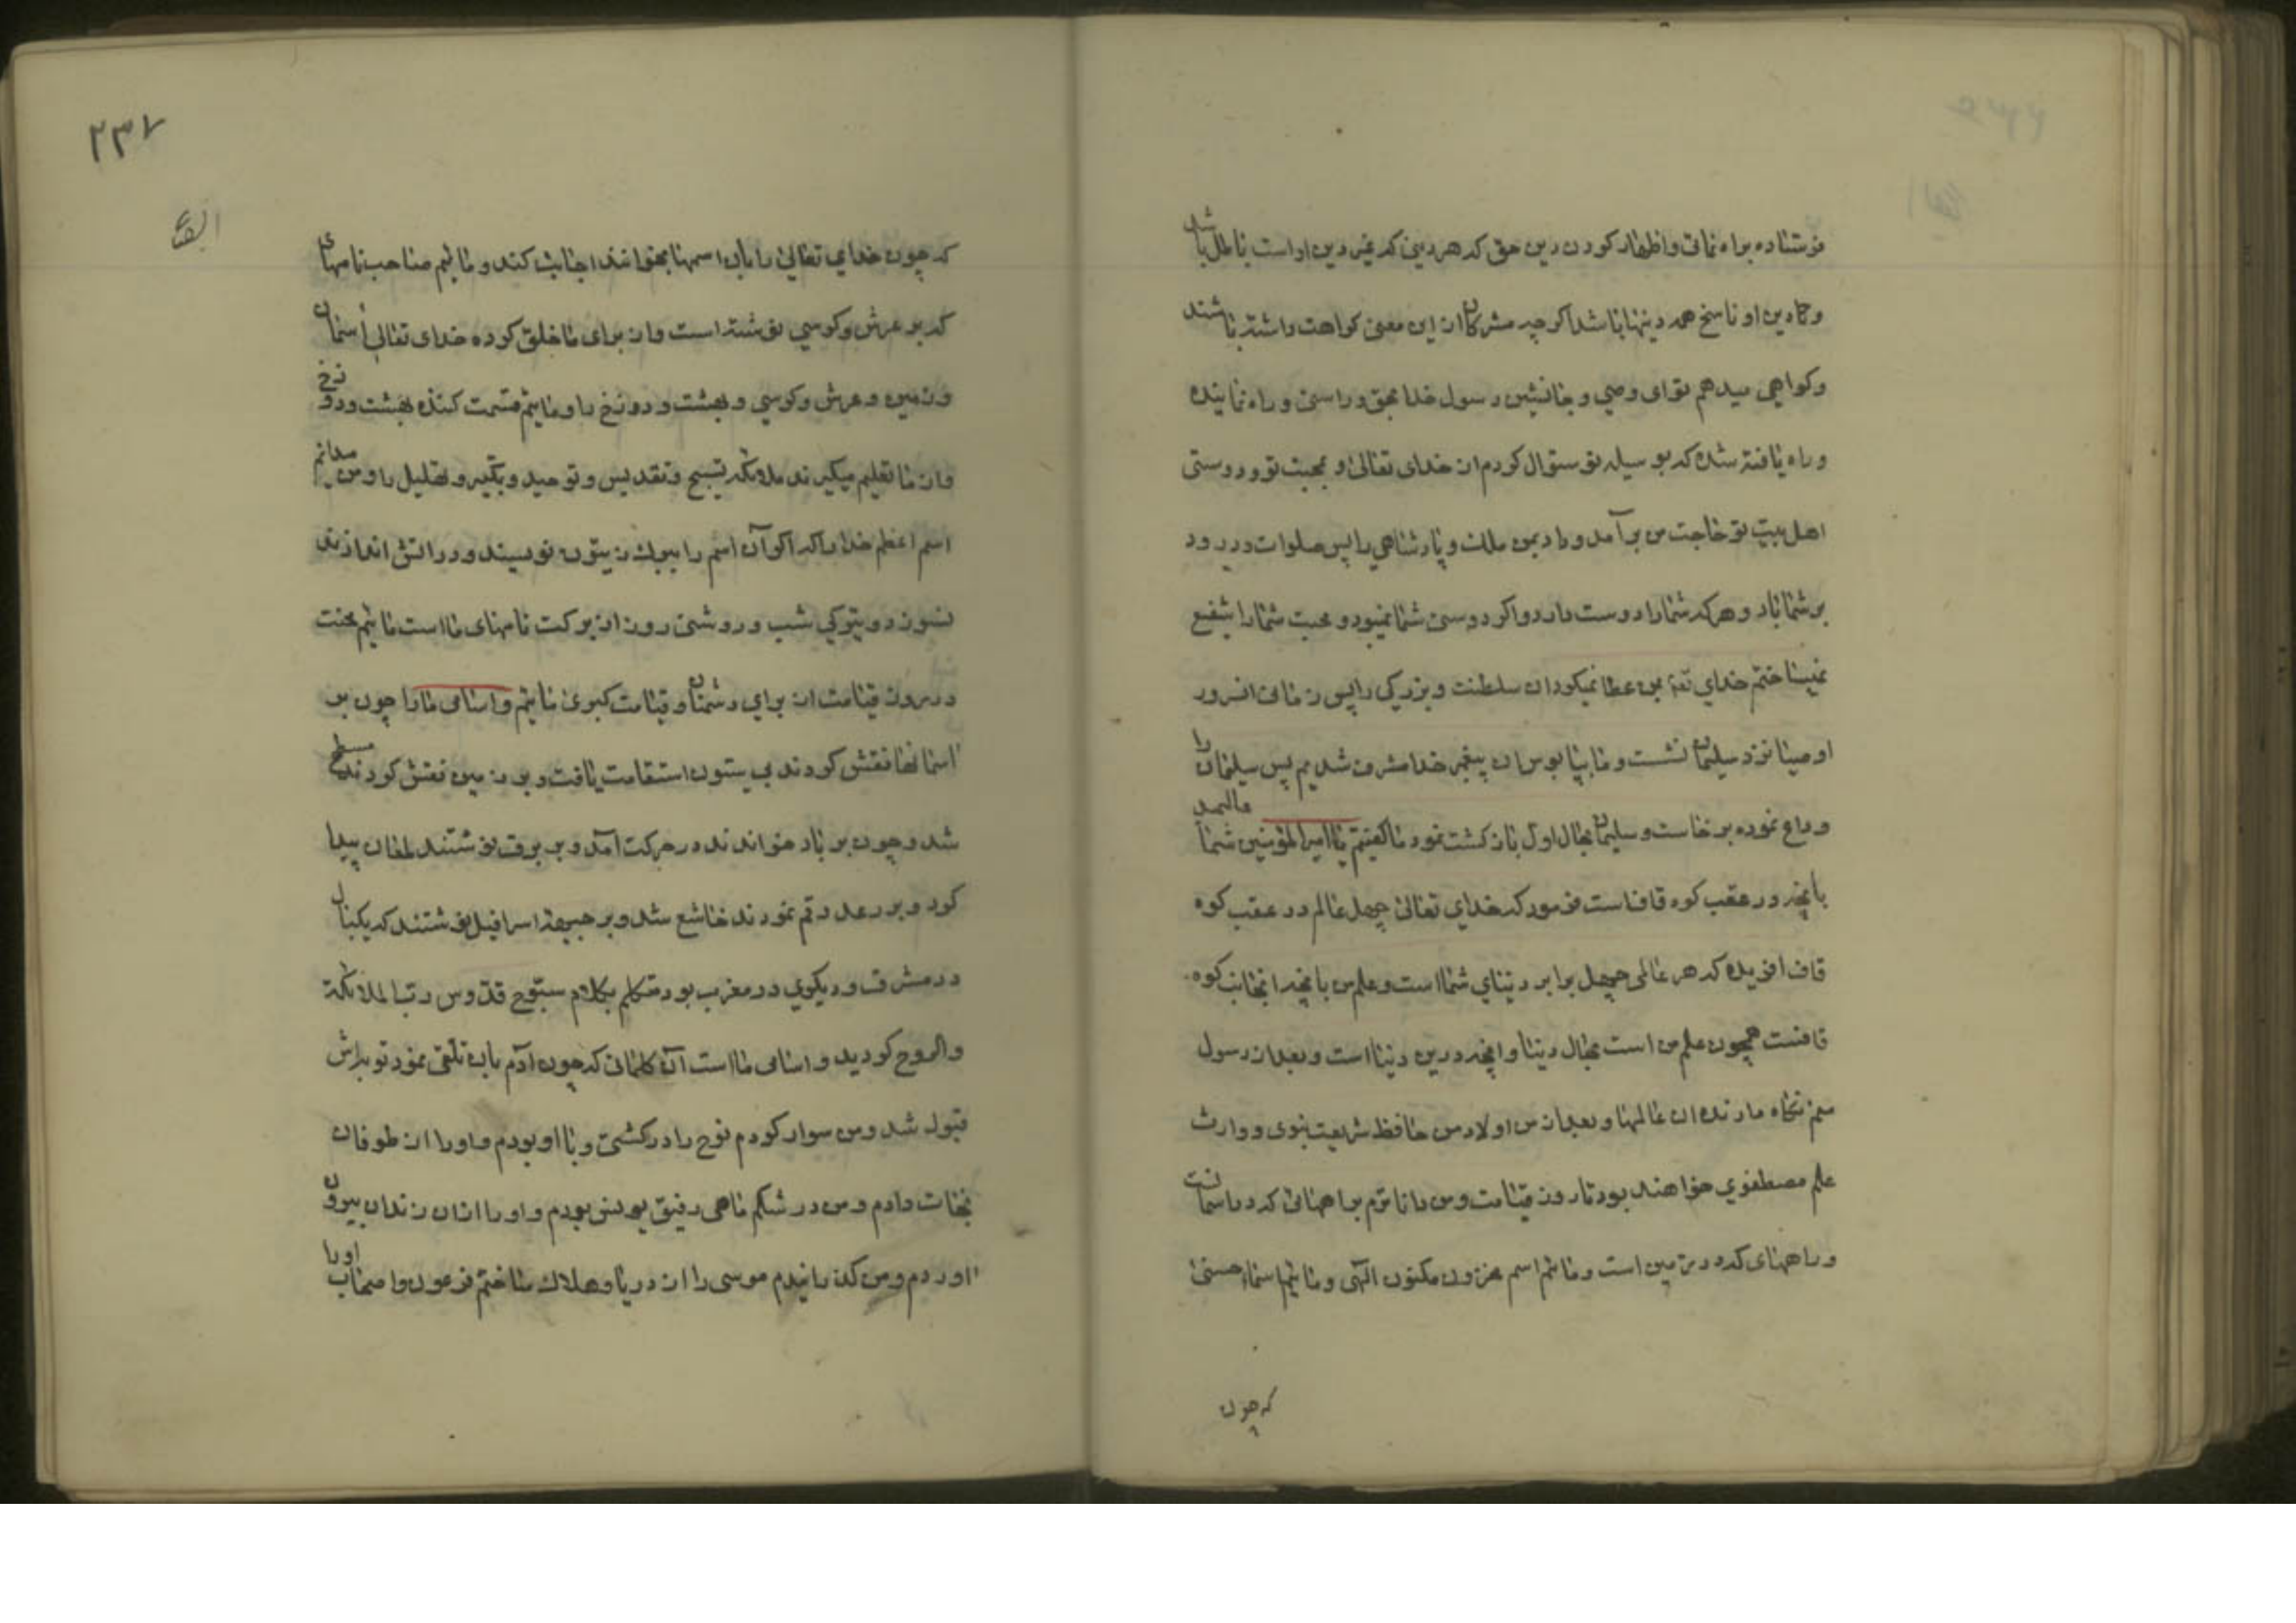 فرستاده براه نمائی و اظهار کردن دین حق که هر دینی که غیر دین او است باطل باشد
و تا دین او ناسخ همه دینها باشد اگر چه مشرکان از این معنی کراهت داشته باشند
و کواهی میدهم توای وصی و جانشین رسول خدا بحق و راستی و راه نماینده
و راه یافته شده که بوسیله تو سئوال کردم از خدای تعالی و بمحبت تو و دوستی
اهل بیت تو حاجت من برآمد و داد بمن ملک و پادشاهی را پس صلوات و درود
بر شما باد و هر که شما را دوست دارد و اکر دوستی شما نمیبود و محبت شما را شفیع
نمیساختم خدای تعه بمن عطا نمیکرد ان سلطنت و بزرکی را پس زمانی
او صیا نزد سلیمان نشست و ما بپا بوس ان پیغمبر خدا مشرف شدیم پس سلیمان را
وداع نموده برخاست و سلیمان بحال اول باز کشت نمود ما کفتیم یا امیر المؤمنین شما
بانچه در عقب کوه قاف است فرمود که خدای تعالی چهل عالم در عقب کوه
قاف افریده که هر عالمی چهل برابر دنیای شما است و علم من بانچه انجانب کوه
قافست همچون علم من است بحال دنیا و انچه درین دنیا است و بعد از رسول
منم نکاه دارنده ان عالمها و بعد از من اولاد من حافظ شریعت نبوی و وارث
علم مصطفوی خواهند بود تا روز قیامت و من دانا ترم براههائی که در اسمانست
و راههای که در زمین است و مائیم اسم مخزون مکنون الهی و مائیم اسماء حسنی
که چون
۲۳۷
که چون خدای تعالی را بان اسمها بخوانند اجابت کند و مائیم صاحب نامهای
که بر عرش و کرسی نوشته است و از برای ما خلق کرده خدای تعالی اسمان
و زمین و عرش و کرسی و بهشت و دوزخ را و مائیم قسمت کننده بهشت و دوزخ
و از ما تعلیم میکیرند ملائکه تسبیح و تقدیس و توحید و تکبیر و تهلیل را و من میدانم
اسم اعظم خدا را که اکر آن اسم را ببرک زیتون نویسند و در اتش اندازند
نسوزد و تیرکی شب و روشنی روز از برکت نامهای ما است مائیم محنت
در روز قیامت از برای دشمنان و قیامت کبری مائیم و اسامی ما را چون بر
اسمانها نقش کردند بی ستون استقامت یافت و بر زمین نقش کردند مسطح
شد و چون بر باد خواندند در حرکت آمد و بر برق نوشتند لمعان پیدا
کرد و بر رعد رقم نمودند خاشع شد و بر جبهه اسرافیل نوشتند که یکبال
در مشرق و دیکری در مغرب بود متکلم بکلام سبوح قدوس ربنا الملائکة
والروح کردید و اسامی ما است آن کلماتی که چون آدم بان تلقی نمود توبه اش
قبول شد و من سوار کردم نوح را در کشتی و با او بودم و او را از طوفان
نجات دادم و من در شکم ماهی رفیق یونس بودم و او را از ان زندان بیرون
اوردم و من کذرانیدم موسی را از دریا و هلاک ساختم فرعون و اصحاب او را